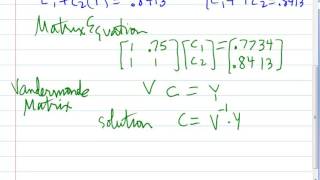 C₁+C₂(1) = .8413 C₁+1C₂=.8413
Matrix Equation
[1 .75] [C₁] = [.7734]
[1 1] [C₂] [.8413]
Vandermonde V C = Y
Matrix
solution C = V⁻¹·Y